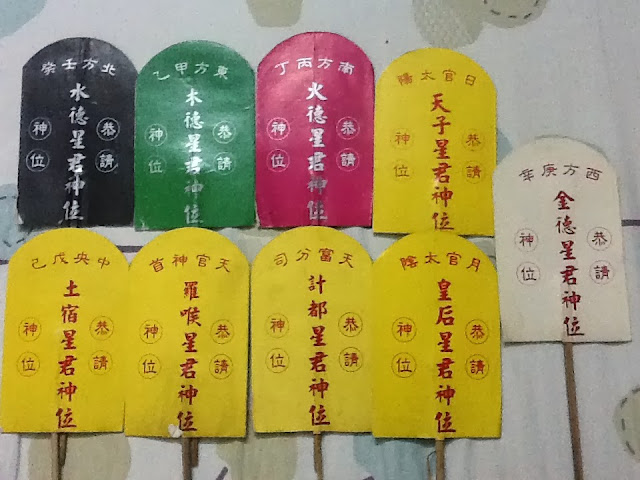 北方壬癸
恭請
水德星君神位
神位
東方甲乙
恭請
木德星君神位
神位
南方丙丁
恭請
火德星君神位
神位
日官太陽
恭請
天子星君神位
神位
西方庚辛
恭請
金德星君神位
神位
中央戊己
恭請
土宿星君神位
神位
天官神首
恭請
羅喉星君神位
神位
天富分司
恭請
計都星君神位
神位
月官太陰
恭請
皇后星君神位
神位